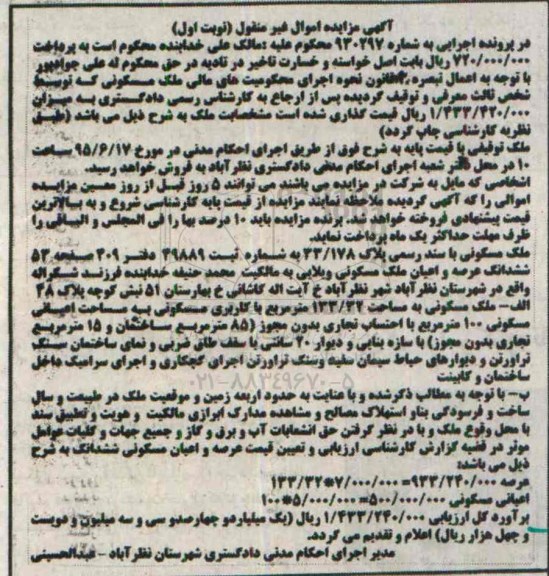 آگهی مزایده اموال غیر منقول (نوبت اول)
در پرونده اجرایی به شماره ۹۳۰۲۹۷ محکوم علیه :مالک علی خدابنده محکوم است به پرداخت
۷۲۰/۰۰۰/۰۰۰ ریال بابت اصل خواسته و خسارت تاخیر در تادیه در حق محکوم له علی جوادپور
با توجه به اعمال تبصره ۲ قانون نحوه اجرای محکومیت های مالی ملک مسکونی که توسط
شخص ثالث معرفی و توقیف گردیده پس از ارجاع به کارشناس رسمی دادگستری به میزان
۱/۴۳۳/۲۴۰/۰۰۰ ریال قیمت گذاری شده است مشخصات ملک به شرح ذیل می باشد (طبق
نظریه کارشناسی چاپ گردد)
ملک توقیفی با قیمت پایه به شرح فوق از طریق اجرای احکام مدنی در مورخ ۹۵/۶/۱۷ ساعت
۱۰ در محل دفتر شعبه اجرای احکام مدنی دادگستری نظرآباد به فروش خواهد رسید.
اشخاصی که مایل به شرکت در مزایده می باشند می توانند ۵ روز قبل از روز معین مزایده
اموالی را که آگهی گردیده ملاحظه نمایند مزایده از قیمت پایه کارشناسی شروع و به بالاترین
قیمت پیشنهادی فروخته خواهد شد. برنده مزایده باید ۱۰ درصد بها را فی المجلس و الباقی را
ظرف مهلت حداکثر یک ماه پرداخت نماید.
ملک مسکونی با سند رسمی پلاک ۳۳/۱۷۸ به شماره ثبت ۴۹۸۸۹ دفتر ۴۰۹ صفحه ۵۲
ششدانگ عرصه و اعیان ملک مسکونی ویلایی به مالکیت محمد حنیفه خدابنده فرزند شکراله
واقع در شهرستان نظرآباد شهر نظرآباد خ آیت اله کاشانی خ بهارستان ۵۱ نبش کوچه پلاک ۴۸
الف- ملک مسکونی به مساحت ۱۳۳/۳۲ مترمربع با کاربری مسکونی به مساحت اعیانی
مسکونی ۱۰۰ مترمربع با احتساب تجاری بدون مجوز (۸۵ مترمربع ساختمان و ۱۵ مترمربع
تجاری بدون مجوز) با سازه بنایی و دیوار ۲۰ سانتی با سقف طاق ضربی و نمای ساختمان سینک
تراورتن و دیوارهای حیاط سیمان سفید وینک تراورتن اجرای گچکاری و اجرای سرامیک داخل
ساختمان و کابینت
۰۲۱-۸۸۳۴۹۶۷۰-۵
ب- با توجه به مطالب ذکرشده و با عنایت به حدود اربعه زمین و موقعیت ملک در طبیعت و سال
ساخت و فرسودگی بنا و استهلاک مصالح و مشاهده مدارک ابرازی مالکیت و هویت و تطبیق سند
با محل وقوع ملک و با در نظر گرفتن حق انشعابات آب و برق و گاز و جمیع جهات و کلیات عوامل
موثر در قضیه گزارش کارشناسی ارزیابی و تعیین قیمت عرصه و اعیان مسکونی ششدانگ به شرح
ذیل می باشد:
عرصه ۹۳۳/۲۴۰/۰۰۰=۷/۰۰۰/۰۰۰*۱۳۳/۳۲
اعیانی مسکونی ۵۰۰/۰۰۰/۰۰۰=۵/۰۰۰/۰۰۰*۱۰۰
برآورد کل ارزیابی ۱/۴۳۳/۲۴۰/۰۰۰ ریال (یک میلیارد و چهارصدو سی و سه میلیون و دویست
و چهل هزار ریال) اعلام و تقدیم می گردد.
مدیر اجرای احکام مدنی دادگستری شهرستان نظرآباد - عبدالحسینی